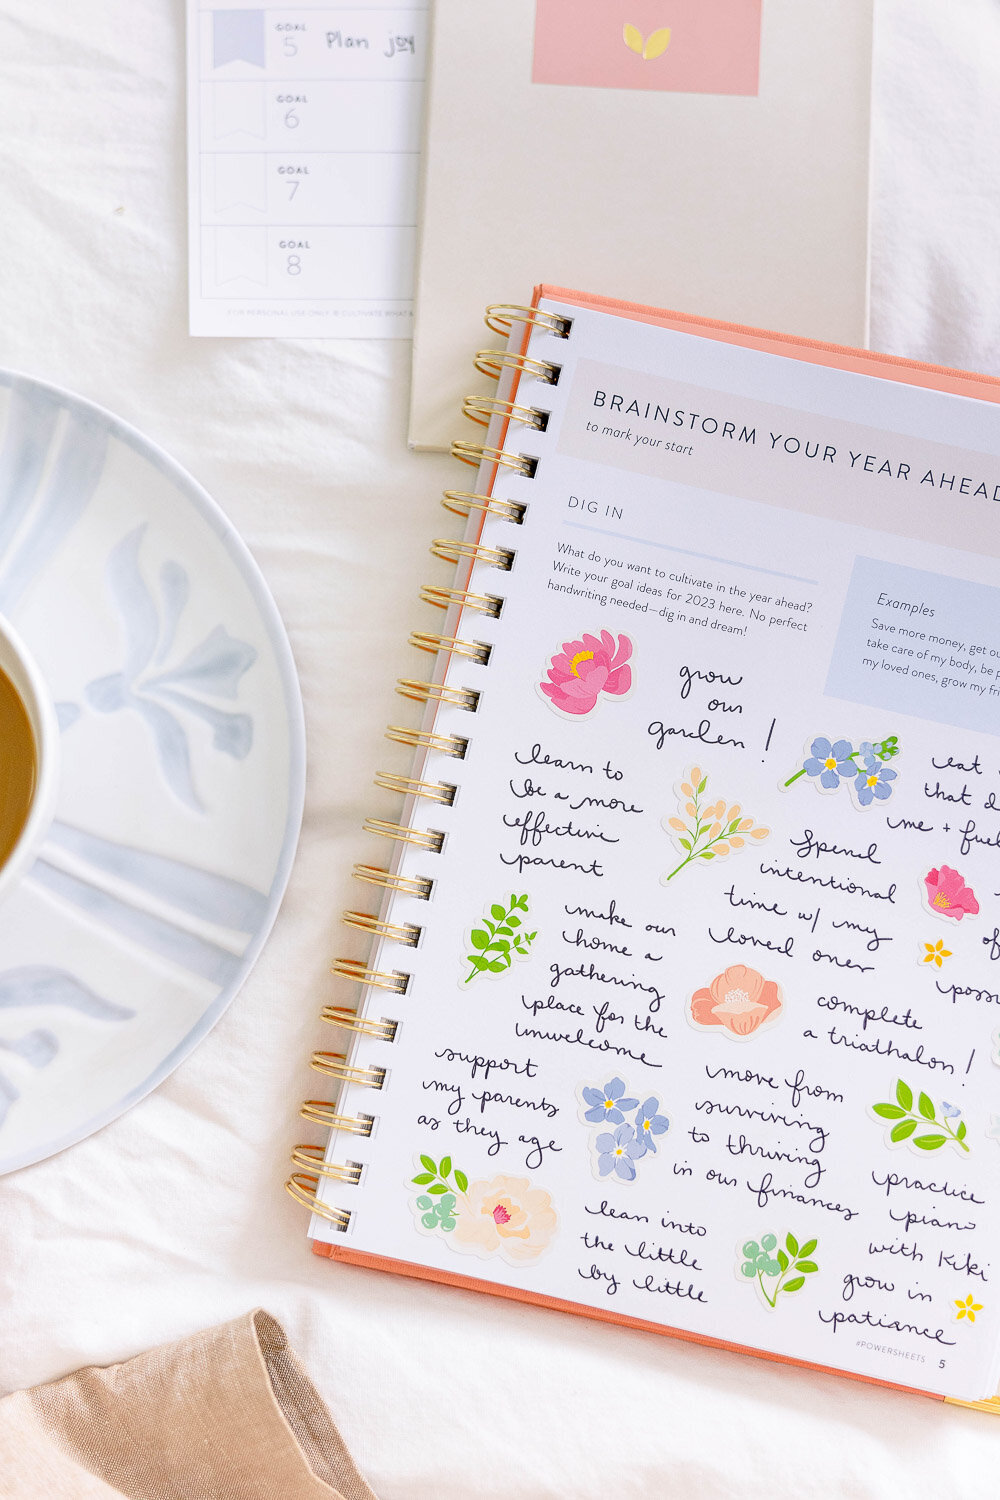 GOAL
5
Plan joy
GOAL
6
GOAL
7
GOAL
8
FOR PERSONAL USE ONLY. © CULTIVATE WHAT
BRAINSTORM YOUR YEAR AHEAD
to mark your start
DIG IN
What do you want to cultivate in the year ahead?
Write your goal ideas for 2023 here. No perfect
handwriting needed—dig in and dream!
Examples
Save more money, get
take care of my body, be
my loved ones, grow my
grow
our
garden!
eat
that
me + fuel
learn to
be a more
effective
parent
Spend
intentional
time w/ my
loved ones
of
make our
home a
gathering
place for the
unwelcome
complete
a triathalon!
support
my parents
as they age
move from
surviving
to thriving
in our finances
practice
piano
with Kiki
lean into
the little
by little
grow in
patiance
#POWERSHEETS 5